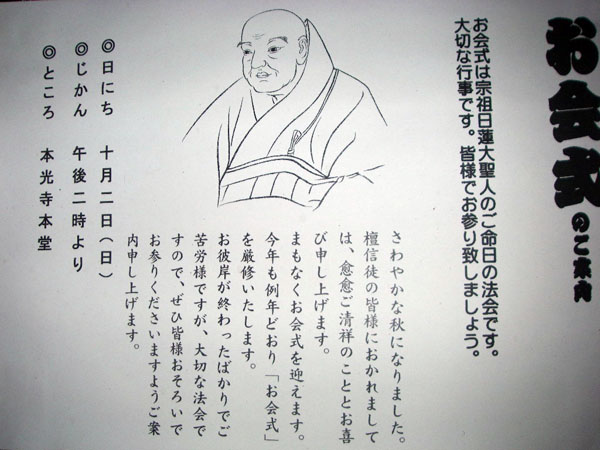 お会式のご案内
お会式は宗祖日蓮大聖人のご命日の法会です。
大切な行事です。皆様でお参り致しましょう。
さわやかな秋になりました。
檀信徒の皆様におかれまして
は、愈愈ご清祥のこととお喜
び申し上げます。
まもなくお会式を迎えます。
今年も例年どおり「お会式」
を厳修いたします。
お彼岸が終わったばかりでご
苦労様ですが、大切な法会で
すので、ぜひ皆様おそろいで
お参りくださいますようご案
内申し上げます。
◎日にち 十月二日(日)
◎じかん 午後二時より
◎ところ 本光寺本堂